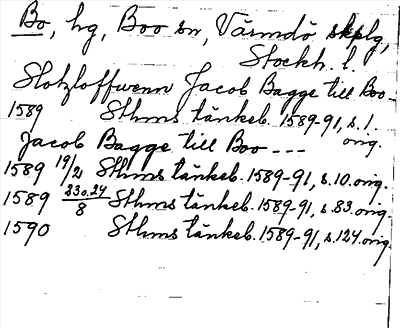 Bo, hg, Boo sn, Värmdö skplg,
Stockh. l.
Slotzloffwenn Jacob Bagge till Boo
1589 Sthms tänkeb. 1589-91, s. 1.
orig.
Jacob Bagge till Boo ---
1589 19/21 Sthms tänkeb. 1589-91, s. 10. orig.
1589 23 o. 24/8 Sthms tänkeb. 1589-91, s. 83. orig.
1590 Sthms tänkeb. 1589-91, s. 124. orig.